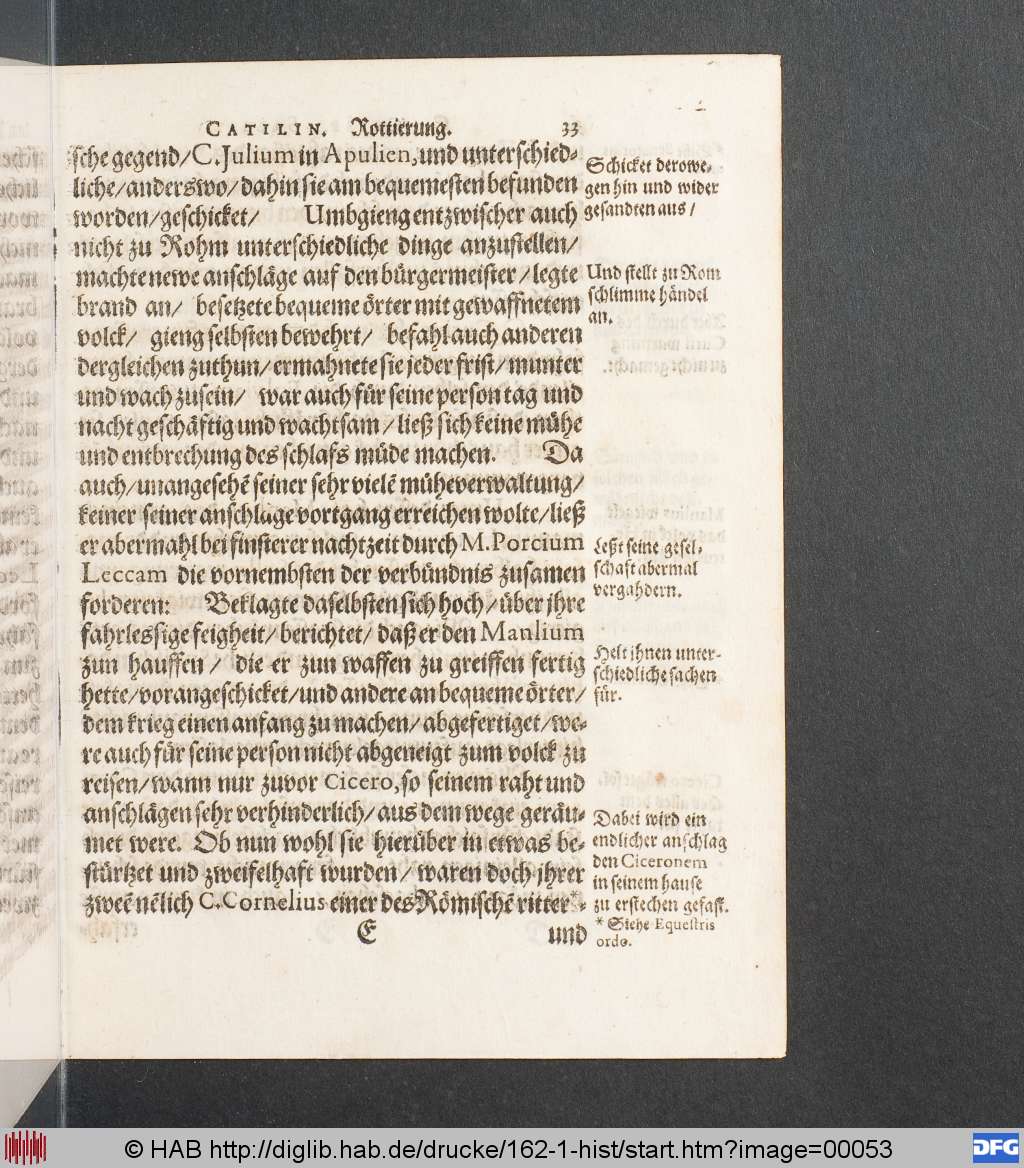 CATILIN. Rottierung. 33
sche gegend/C. Julium in Apulien, und unterschied-
liche/anderswo/dahin sie am bequemesten befunden
worden/geschicket/ Umbgieng entzwischer auch
nicht zu Rohm unterschiedliche dinge anzustellen/
machte newe anschläge auf den bürgermeister/legte
brand an/ besetzete bequeme örter mit gewaffnetem
volck/ gieng selbsten bewehrt/ befahl auch anderen
dergleichen zuthun/ermahnete sie jeder frist/munter
und wach zusein/ war auch für seine person tag und
nacht geschäftig und wachtsam/ließ sich keine mühe
und entbrechung des schlafs müde machen. Da
auch/unangesehē seiner sehr vielē müheverwaltung/
keiner seiner anschläge vortgang erreichen wolte/ließ
er abermahl bei finsterer nachtzeit durch M. Porcium
Leccam die vornembsten der verbündnis zusamen
forderen: Beklagte daselbsten sich hoch/über jhre
fahrlessige feigheit/berichtet/daß er den Manlium
zun hauffen/ die er zun waffen zu greiffen fertig
hette/vorangeschicket/und andere an bequeme örter/
dem krieg einen anfang zu machen/abgefertiget/we-
re auch für seine person nicht abgeneigt zum volck zu
reisen/wann nur zuvor Cicero, so seinem raht und
anschlägen sehr verhinderlich/aus dem wege geräu-
met were. Ob nun wohl sie hierüber in etwas be-
stürtzet und zweifelhaft wurden/waren doch jhrer
zweē nēlich C. Cornelius einer des Römischē ritter*-
E und
Schicket derowe-
gen hin und wider
gesandten aus/
Und stellt zu Rom
schlimme händel
an.
Leßt seine gesel-
schaft abermal
vergahdern.
Helt jhnen unter-
schiedliche sachen
für.
Dabei wird ein
endlicher anschlag
den Ciceronem
in seinem hause
zu erstechen gefast.
* Siehe Equestris
ordo.
© HAB http://diglib.hab.de/drucke/162-1-hist/start.htm?image=00053
DFG